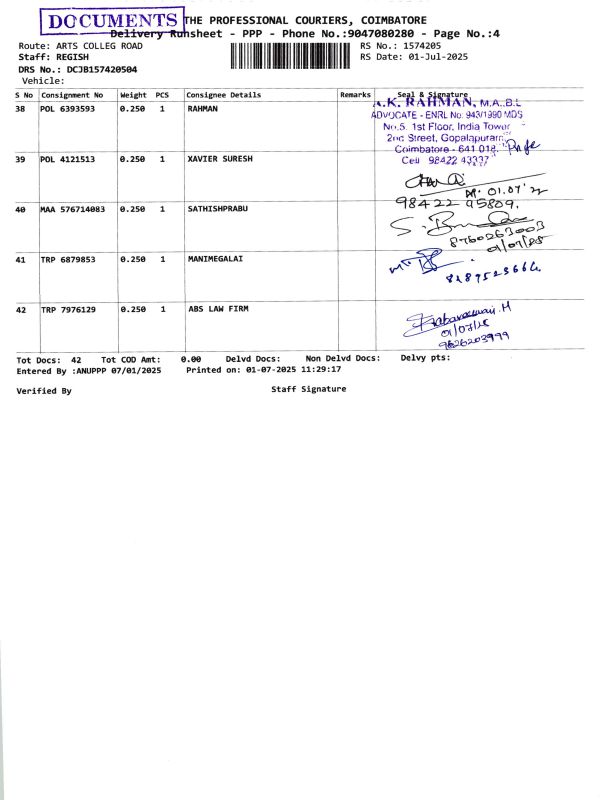 DOCUMENTS THE PROFESSIONAL COURIERS, COIMBATORE
Delivery Runsheet - PPP - Phone No.:9047080280 - Page No.:4
Route: ARTS COLLEG ROAD RS No.: 1574205
Staff: REGISH RS Date: 01-Jul-2025
DRS No.: DCJB157420504
Vehicle:
S No Consignment No Weight PCS Consignee Details Remarks Seal & Signature
38 POL 6393593 0.250 1 RAHMAN
A.K. RAHMAN, M.A.,B.L
ADVOCATE - ENRL No: 943/1990 MDS
No.5, 1st Floor, India Towur
2nd Street, Gopalapuram
Coimbatore - 641 018.
Cell 98422 43337
39 POL 4121513 0.250 1 XAVIER SURESH
01.07
98422 95809.
40 MAA 576714083 0.250 1 SATHISHPRABU
8760263003
01/07/25
41 TRP 6879853 0.250 1 MANIMEGALAI
8189523664
42 TRP 7976129 0.250 1 ABS LAW FIRM
01/07/25
9626203999
Tot Docs: 42 Tot COD Amt: 0.00 Delvd Docs: Non Delvd Docs: Delvy pts:
Entered By :ANUPPP 07/01/2025 Printed on: 01-07-2025 11:29:17
Verified By Staff Signature